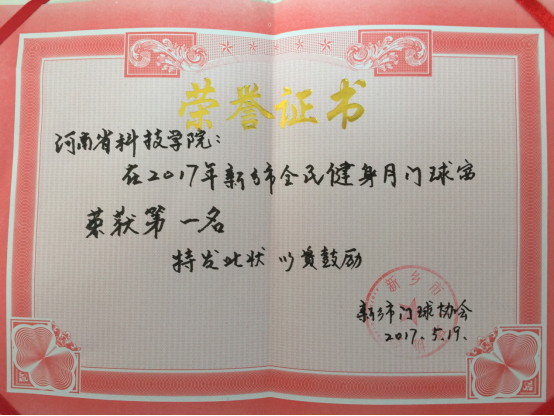 荣誉证书
河南省科技学院：
在2017年新乡市全民健身月门球赛
荣获第一名
特发此状 以资鼓励
新乡市
新乡市门球协会
2017.5.19.